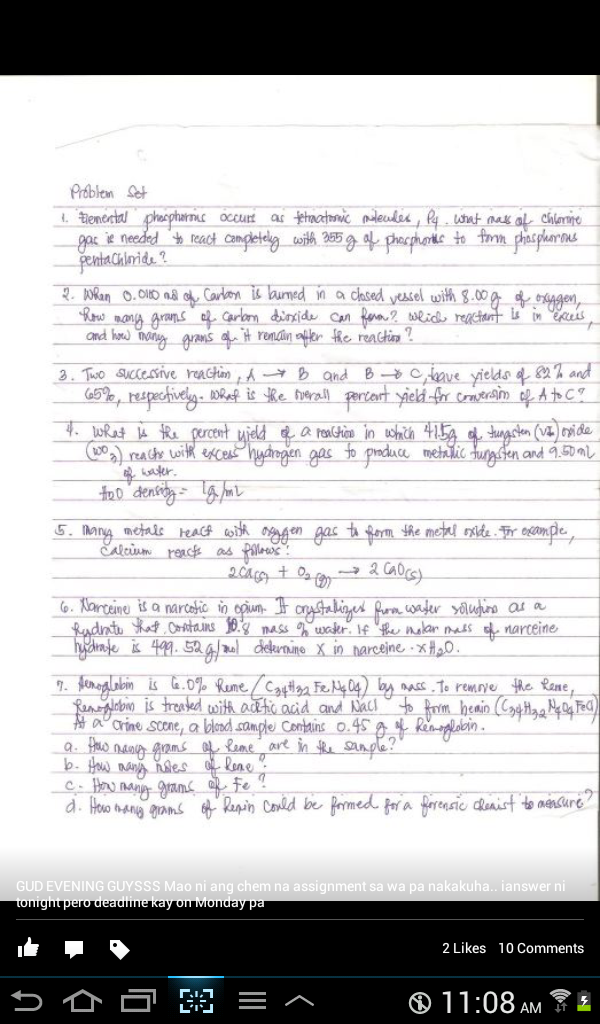 Problem Set
1. Elemental phosphorus occurs as tetraatomic molecules, P4. What mass of chlorine
gas is needed to react completely with 355 g of phosphorus to form phosphorous
pentachloride?
2. When 0.0110 of Carbon is burned in a closed vessel with 8.00 g of oxygen,
how many grams of carbon dioxide can form? Which reactant is in excess,
and how many grams of it remain after the reaction?
3. Two successive reaction, A → B and B → C, have yields of 82% and
65%, respectively. What is the overall percent yield for conversion of A to C?
4. What is the percent yield of a reaction in which 41.5g of tungsten (VI) oxide
(WO3) reacts with excess hydrogen gas to produce metallic tungsten and 9.50 mL
of water.
H2O density = 1g/mL
5. Many metals react with oxygen gas to form the metal oxide. For example,
Calcium reacts as follows:
2Ca(s) + O2(g) → 2 CaO(s)
6. Narceine is a narcotic in opium. It crystallizes from water solution as a
hydrate that contains 10.8 mass % water. If the molar mass of narceine
hydrate is 499.52 g/mol determine X in narceine · xH2O.
7. Hemoglobin is 6.0% heme (C34H32FeN4O4) by mass. To remove the heme,
hemoglobin is treated with acetic acid and NaCl to form hemin (C34H32N4O4FeCl)
At a crime scene, a blood sample contains 0.45 g of hemoglobin.
a. How many grams of heme are in the sample?
b. How many moles of heme?
c. How many grams of Fe?
d. How many grams of hemin could be formed for a forensic chemist to measure?
GUD EVENING GUYSSS Mao ni ang chem na assignment sa wa pa nakakuha.. ianswer ni
tonight pero deadline kay on Monday pa
2 Likes 10 Comments
11:08 AM